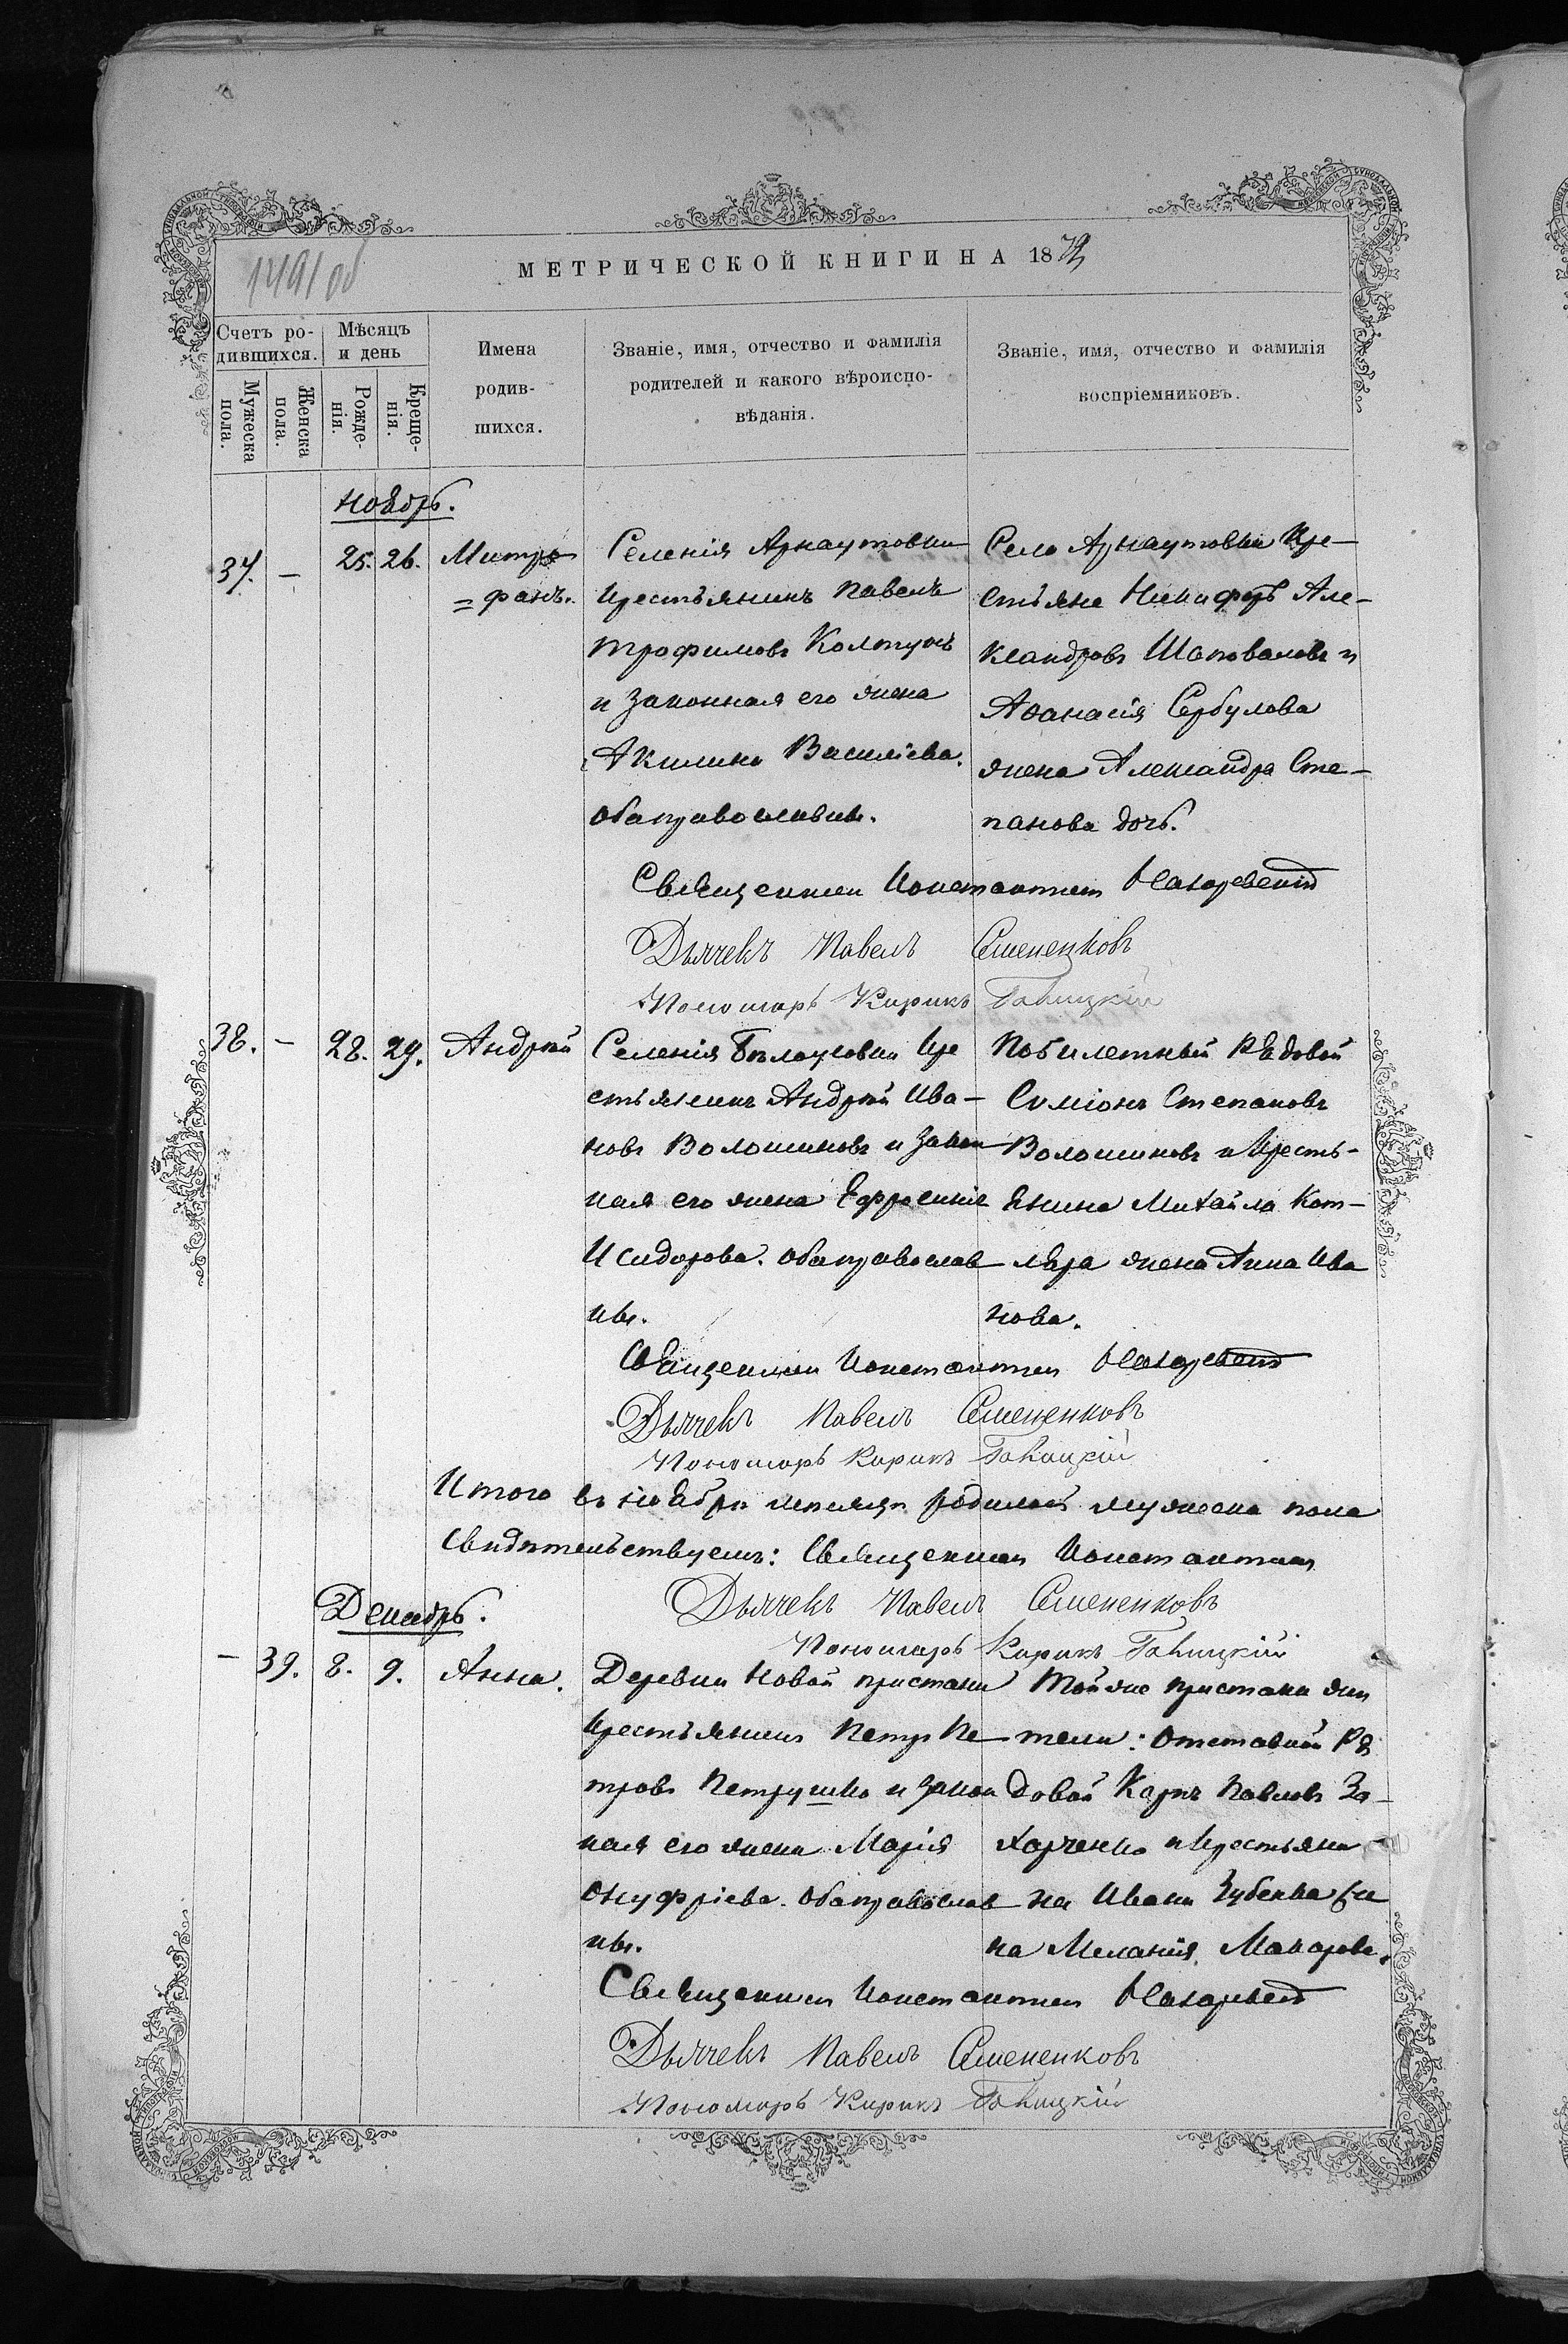 1491 об
МЕТРИЧЕСКОЙ КНИГИ НА 1872
Счетъ ро-
дившихся.
Мѣсяцъ
и день
Мужеска
пола.
Женска
пола.
Рожде-
нія.
Креще-
нія.
Имена
родив-
шихся.
Званіе, имя, отчество и фамилія
родителей и какого вѣроиспо-
вѣданія.
Званіе, имя, отчество и фамилія
воспріемниковъ.
Ноябрь.
37. – 25. 26. Митро
=фанъ.
Селенія Арнаутовки
Крестьянинъ Павелъ
Трофимовъ Колтунъ
и законная его жена
Акилина Василіева.
Оба православны.
Села Арнаутовки Кре-
стьяне Никифоръ Але-
ксандровъ Шаповаловъ и
Аѳанасія Сербулова
жена Александра Сте-
панова дочь.
Священникъ Константинъ
Дьячекъ Павелъ Семененковъ
Пономарь Кирикъ
38. – 28. 29. Андрей
Селенія Бѣлоусовки Кре
стьянинъ Андрей Ива-
новъ Волошиновъ и закон
ная его жена Ефросинія
Исидорова. Оба православ
ны.
Побилетный Рядовой
Симіонъ Степановъ
Волошиновъ и Кресть-
янина Михаила Кот-
ляра жена Анна Ива
нова.
Священникъ Константинъ
Дьячекъ Павелъ Семененковъ
Пономарь Кирикъ
Итого въ ноябрѣ мѣсяцѣ родилось мужеска пола
Свидѣтельствуемъ: Священникъ Константинъ
Дьячекъ Павелъ Семененковъ
Пономарь Кирикъ
Декабрь.
– 39. 8. 9. Анна.
Деревни Новой пристани
Крестьянинъ Петръ Пе
тровъ Петрушко и закон
ная его жена Марія
Онуфріева. Оба православ
ны.
Той же пристани жи
тели: Отставной Ря
довой Карпъ Павловъ За-
харченко и Крестьяни
на Ивана Зубенка
на Меланія Макарова.
Священникъ Константинъ
Дьячекъ Павелъ Семененковъ
Пономарь Кирикъ